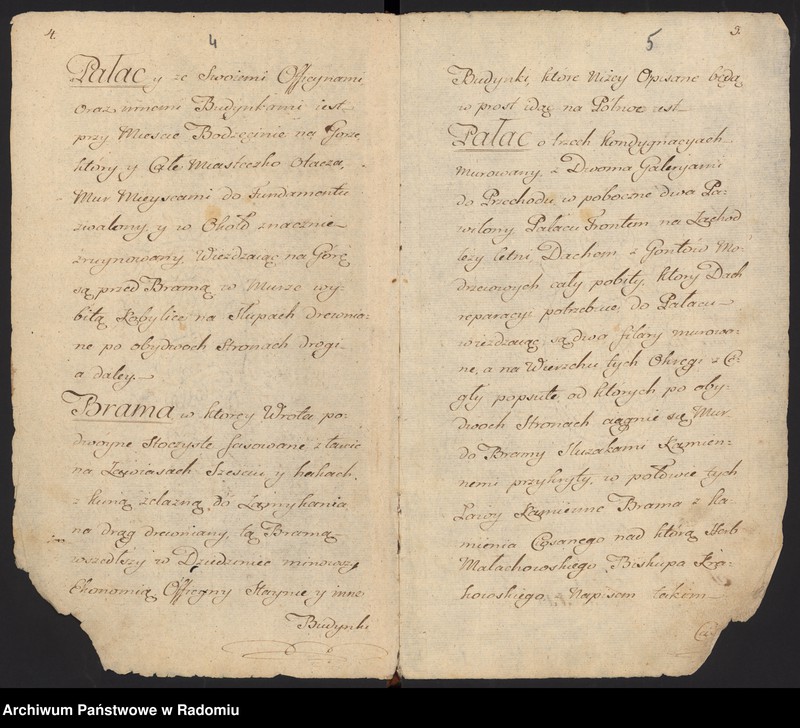 4.
4
Pałac y ze Swoiemi Officynami
oraz innemi Budynkami iest
przy Mieście Bodzęcinie na Gorze,
ktory y Całe Miasteczko Otacza,
Mur Mieyscami do Fundamentu
zwalony, y w Około znacznie
zruynowany, Wieżdżaiąc na Górę
są przed Bramą w Murze wy-
bitą Kobylice na Słupach drewnia-
ne po obydwoch Stronach drogi
a daley.
Brama w ktorey Wrota po-
dwoyne Stoczyste fasowane z tarcic
na Zawiasach Sześciu y hakach
z kuną żelazną do Zamykania
na drąg drewniany, tą Bramą
wszedłszy w Dziedziniec minowszy
Ekonomią Officyny Staynie y inne
Budynki
5
3.
Budynki, które Niżey Opisane będą
w prost idąc na Północ iest
Pałac o trzech kondygnacyach
Murowany, z Dwoma Galeryami
do Przechodu w poboczne dwa Pa-
wilony Pałacu Frontem na Zachod
leży letni, Dachem z Gontów Mo-
drzewowych cały pobity, ktory Dach
reparacyi potrzebuie do Pałacu
wieżdżaiąc są dwa filary murowa-
ne, a na Wierzchu tych Okręgi z Ce-
gły popsute, od ktorych po oby-
dwoch Stronach ciągnie się Mur
do Bramy Sluzakami Kamien-
nemi przykryty, w połowie tych
Ławy Kamienne Brama z ka-
mienia Ciosanego nad którą Herb
Małachowskiego Biskupa Kra-
kowskiego Napisem takim
Archiwum Państwowe w Radomiu